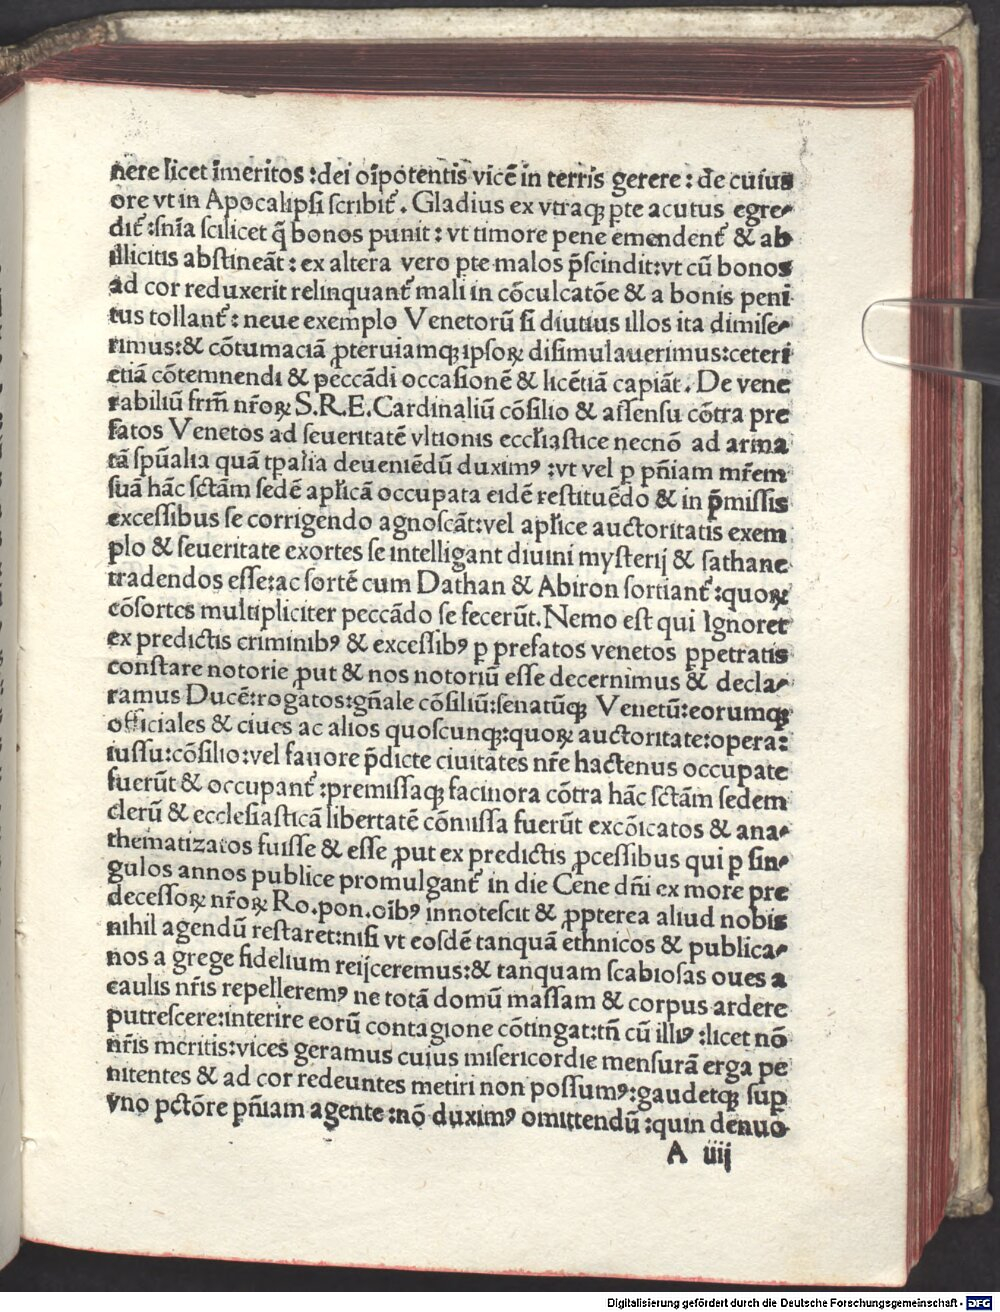 nere licet īmeritos :dei oīpotentis vicē in terris gerere : de cuius
ore vt in Apocalipsi scribiť . Gladius ex vtraqꝫ ꝑte acutus egre⸗
diť :sn̄ia scilicet q̄ bonos punit : vt timore pene emendenť & ab
illicitis abstineāt : ex altera vero ꝑte malos p̄scindit:vt cū bonos
ad cor reduxerit relinquanť mali in cōculcatōe & a bonis peni
tus tollanť : neue exemplo Venetorū si diutius illos ita dimise⸗
rimus:& cōtumaciā ꝓteruiamqꝫ ipsoꝝ disimulauerimus:ceteri
etiā cōtemnendi & peccādi occasionē & licētiā capiāt. De vene
rabiliū frm̄ nr̄oꝝ S.R.E.Cardinaliū cōsilio & assensu cōtra pre
fatos Venetos ad seueritatē vltionis eccłiastice necnō ad arma
tā spūalia quā tꝑalia deueniēdū duximꝰ :vt vel ꝑ pn̄iam mr̄em
suā hāc sctām sedē apłicā occupata eidē restituēdo & in p̄missis
excessibus se corrigendo agnoscāt:vel apłice auctoritatis exem
plo & seueritate exortes se intelligant diuini mysterij & sathane
tradendos esse:ac sortē cum Dathan & Abiron sortianť :quoꝝ
cōsortes multipliciter peccādo se fecerūt. Nemo est qui Ignoret
ex predictis criminibꝰ & excessibꝰ ꝑ prefatos venetos ꝑpetratis
constare notorie ꝓut & nos notoriū esse decernimus & decla⸗
ramus Ducē:rogatos:gn̄ale cōsiliū:senatūqꝫ Venetū:eorumqꝫ
officiales & ciues ac alios quoscunqꝫ:quoꝝ auctoritate:opera:
iussu:cōsilio:vel fauore p̄dicte ciuitates nr̄e hactenus occupate
fuerūt & occupanť :premissaqꝫ facinora cōtra hāc sctām sedem
clerū & ecclesiasticā libertatē cōmissa fuerūt excōicatos & ana⸗
thematizatos fuisse & esse ꝓut ex predictis ꝓcessibus qui ꝑ sin⸗
gulos annos publice promulganť in die Cene dn̄i ex more pre
decessoꝝ nr̄oꝝ Ro.pon.oībꝰ innotescit & ꝓpterea aliud nobis
nihil agendū restaret:nisi vt eosdē tanquā ethnicos & publica⸗
nos a grege fidelium reijceremus:& tanquam scabiosas oues a
caulis nr̄is repelleremꝰ ne totā domū massam & corpus ardere
putrescere:interire eorū contagione cōtingat:tn̄ cū illiꝰ :licet nō
nr̄is meritis:vices geramus cuius misericordie mensurā erga pe
nitentes & ad cor redeuntes metiri non possumꝰ:gaudetqꝫ suꝑ
vno pctōre pn̄iam agente :nō duximꝰ omittendū :quin denuo
A iiij
Digitalisierung gefördert durch die Deutsche Forschungsgemeinschaft - DFG